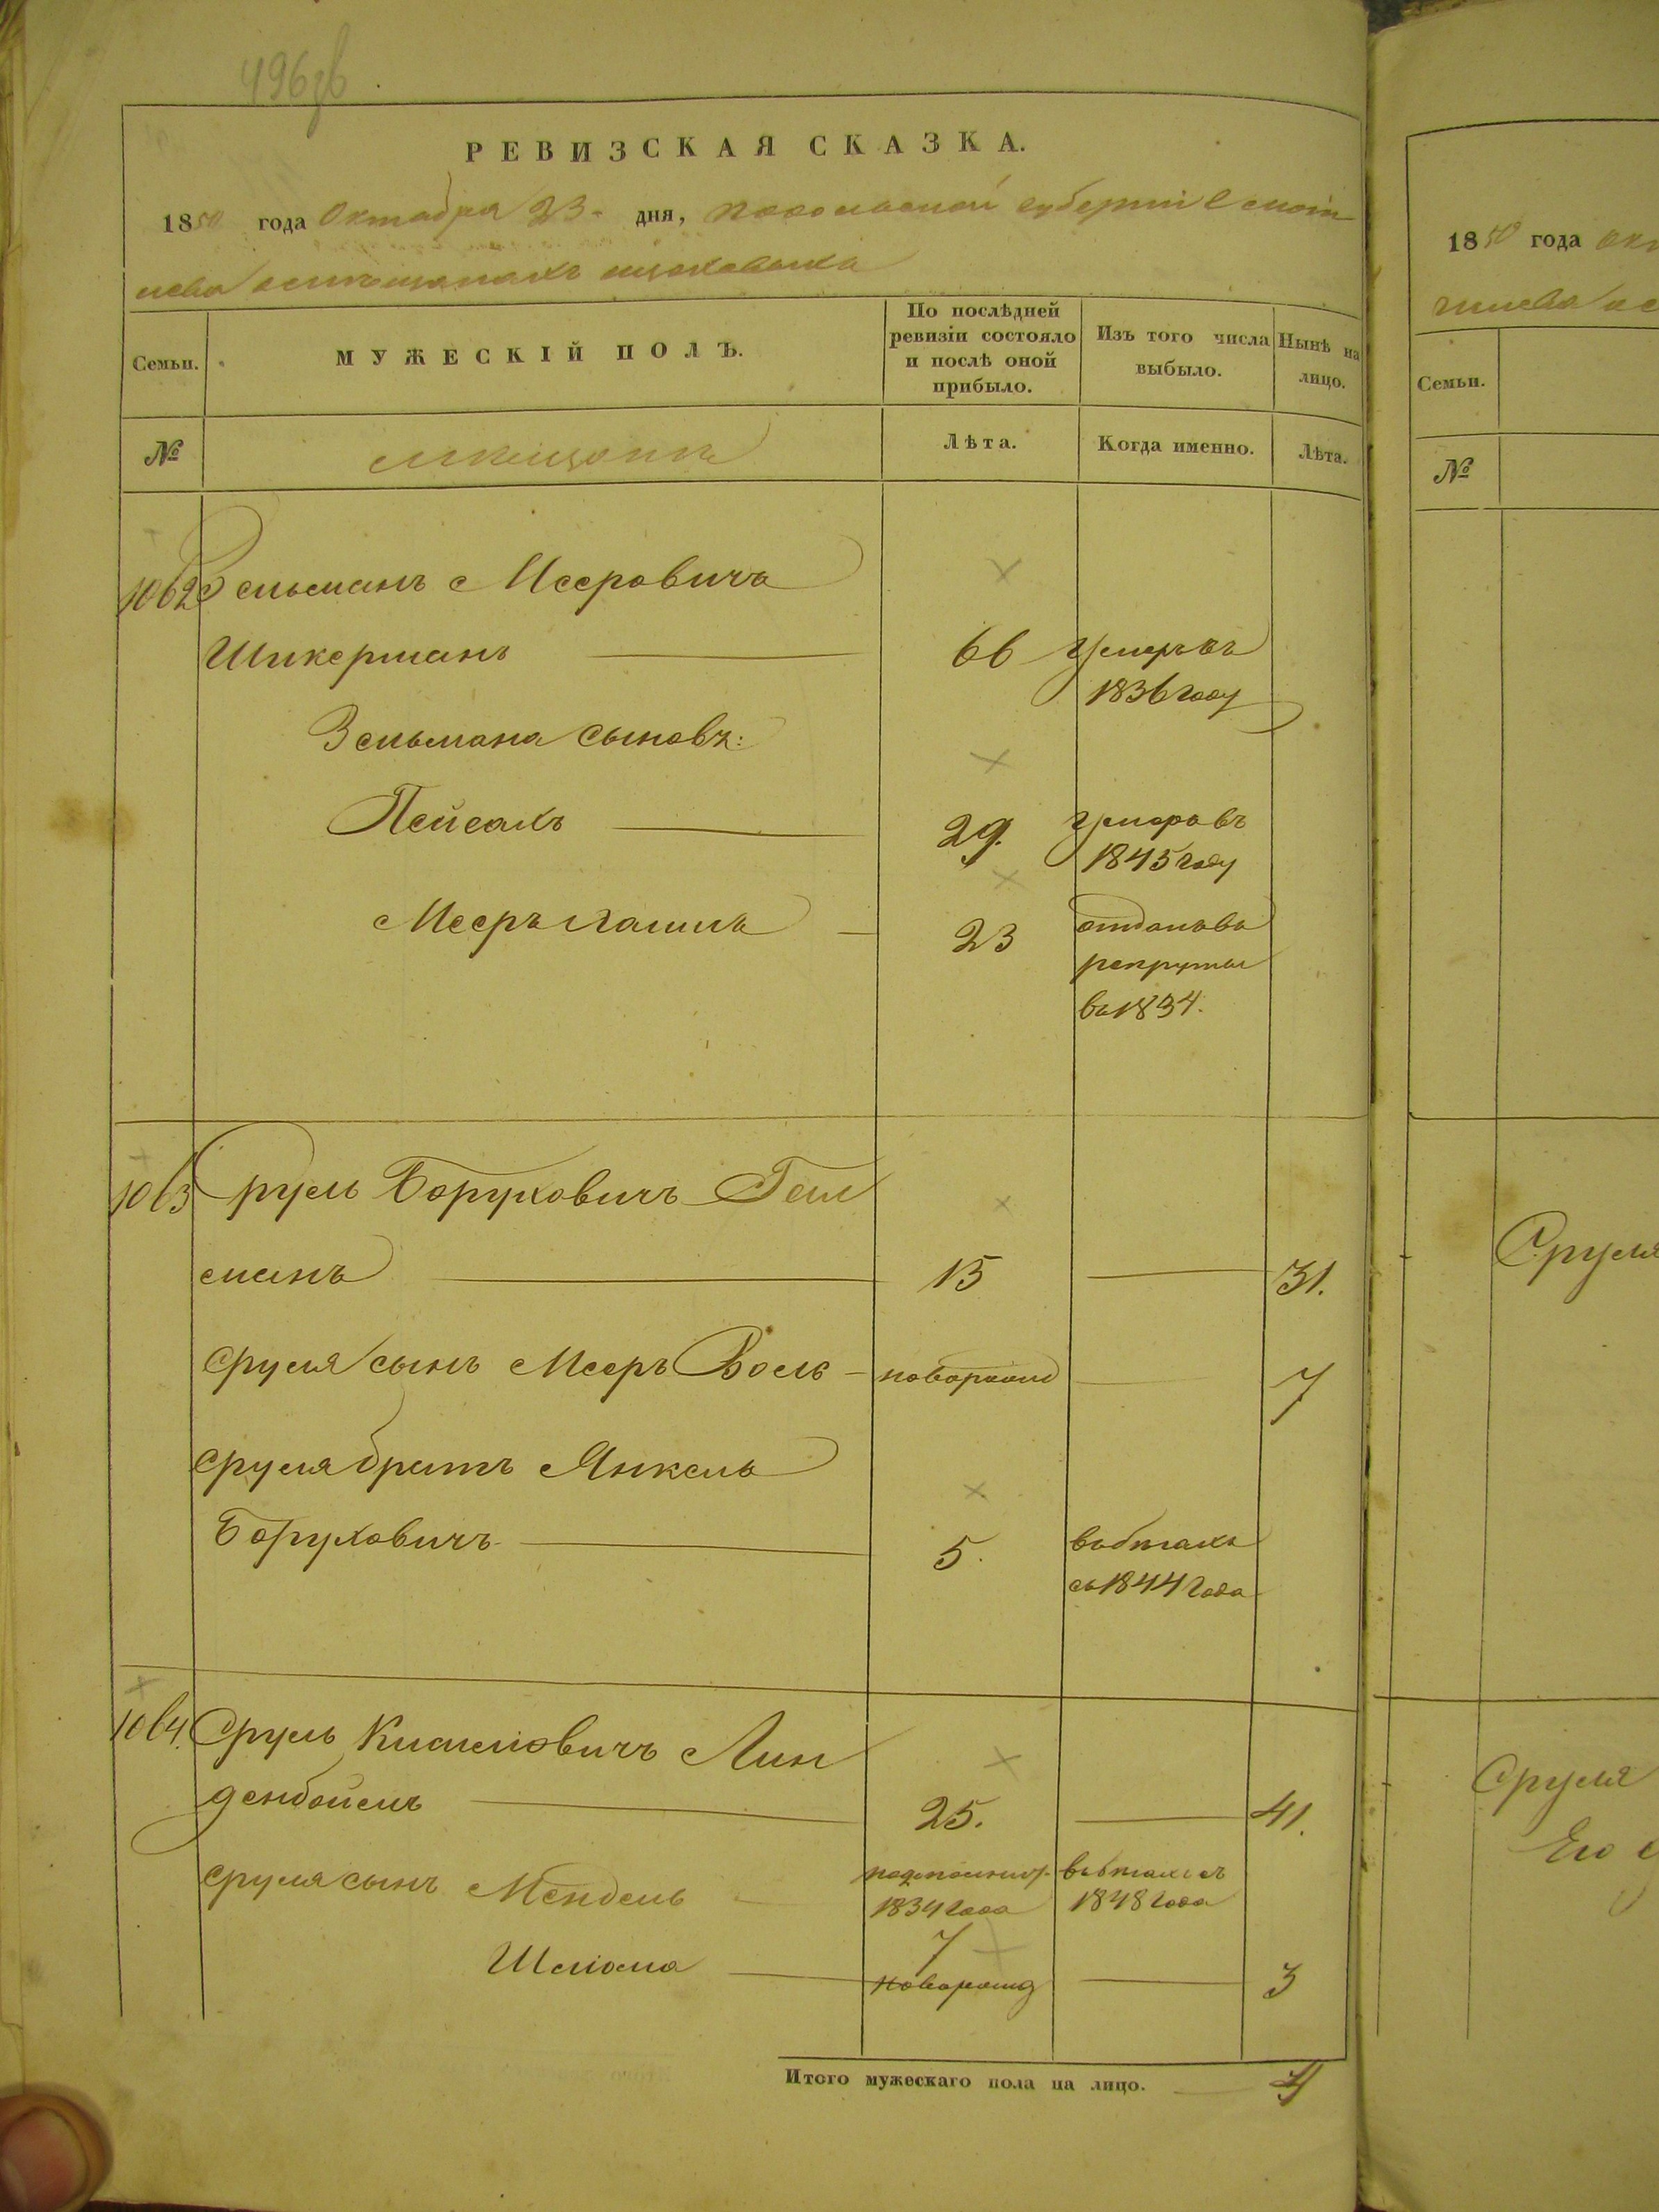 496
РЕВИЗСКАЯ СКАЗКА.
1850 года Октября 23 дня, Подольской губернiи
Семьи.
МУЖЕСКIЙ ПОЛЪ.
По послѣдней ревизiи состояло и послѣ оной прибыло.
Изъ того числа выбыло.
Нынѣ на лицо.
№
мѣщане
Лѣта.
Когда именно.
Лѣта.
1062 Зельманъ Мееровичъ
Шикерманъ 66 Умеръ въ
1836 году
Зельмана сыновъ:
Пейсахъ 29. Умеръ въ
1845 году
Мееръ 23 отданъ въ
рекруты
въ 1834.
1063 Сруль Боруховичъ Гел
манъ 15 31.
Сруля сынъ Мееръ Волъ новорожд 7
Сруля братъ Янкель
Боруховичъ 5. въ бѣгахъ
съ 1844 года
1064. Сруль Лин
денбоймъ 25. 41.
Сруля сынъ Мендель въ бѣгахъ съ
1834 года 1848 года
7
Шлiома новорожд 3
Итого мужескаго пола на лицо. 4
1850 года
Семьи.
№
Сруля
Сруля
Его